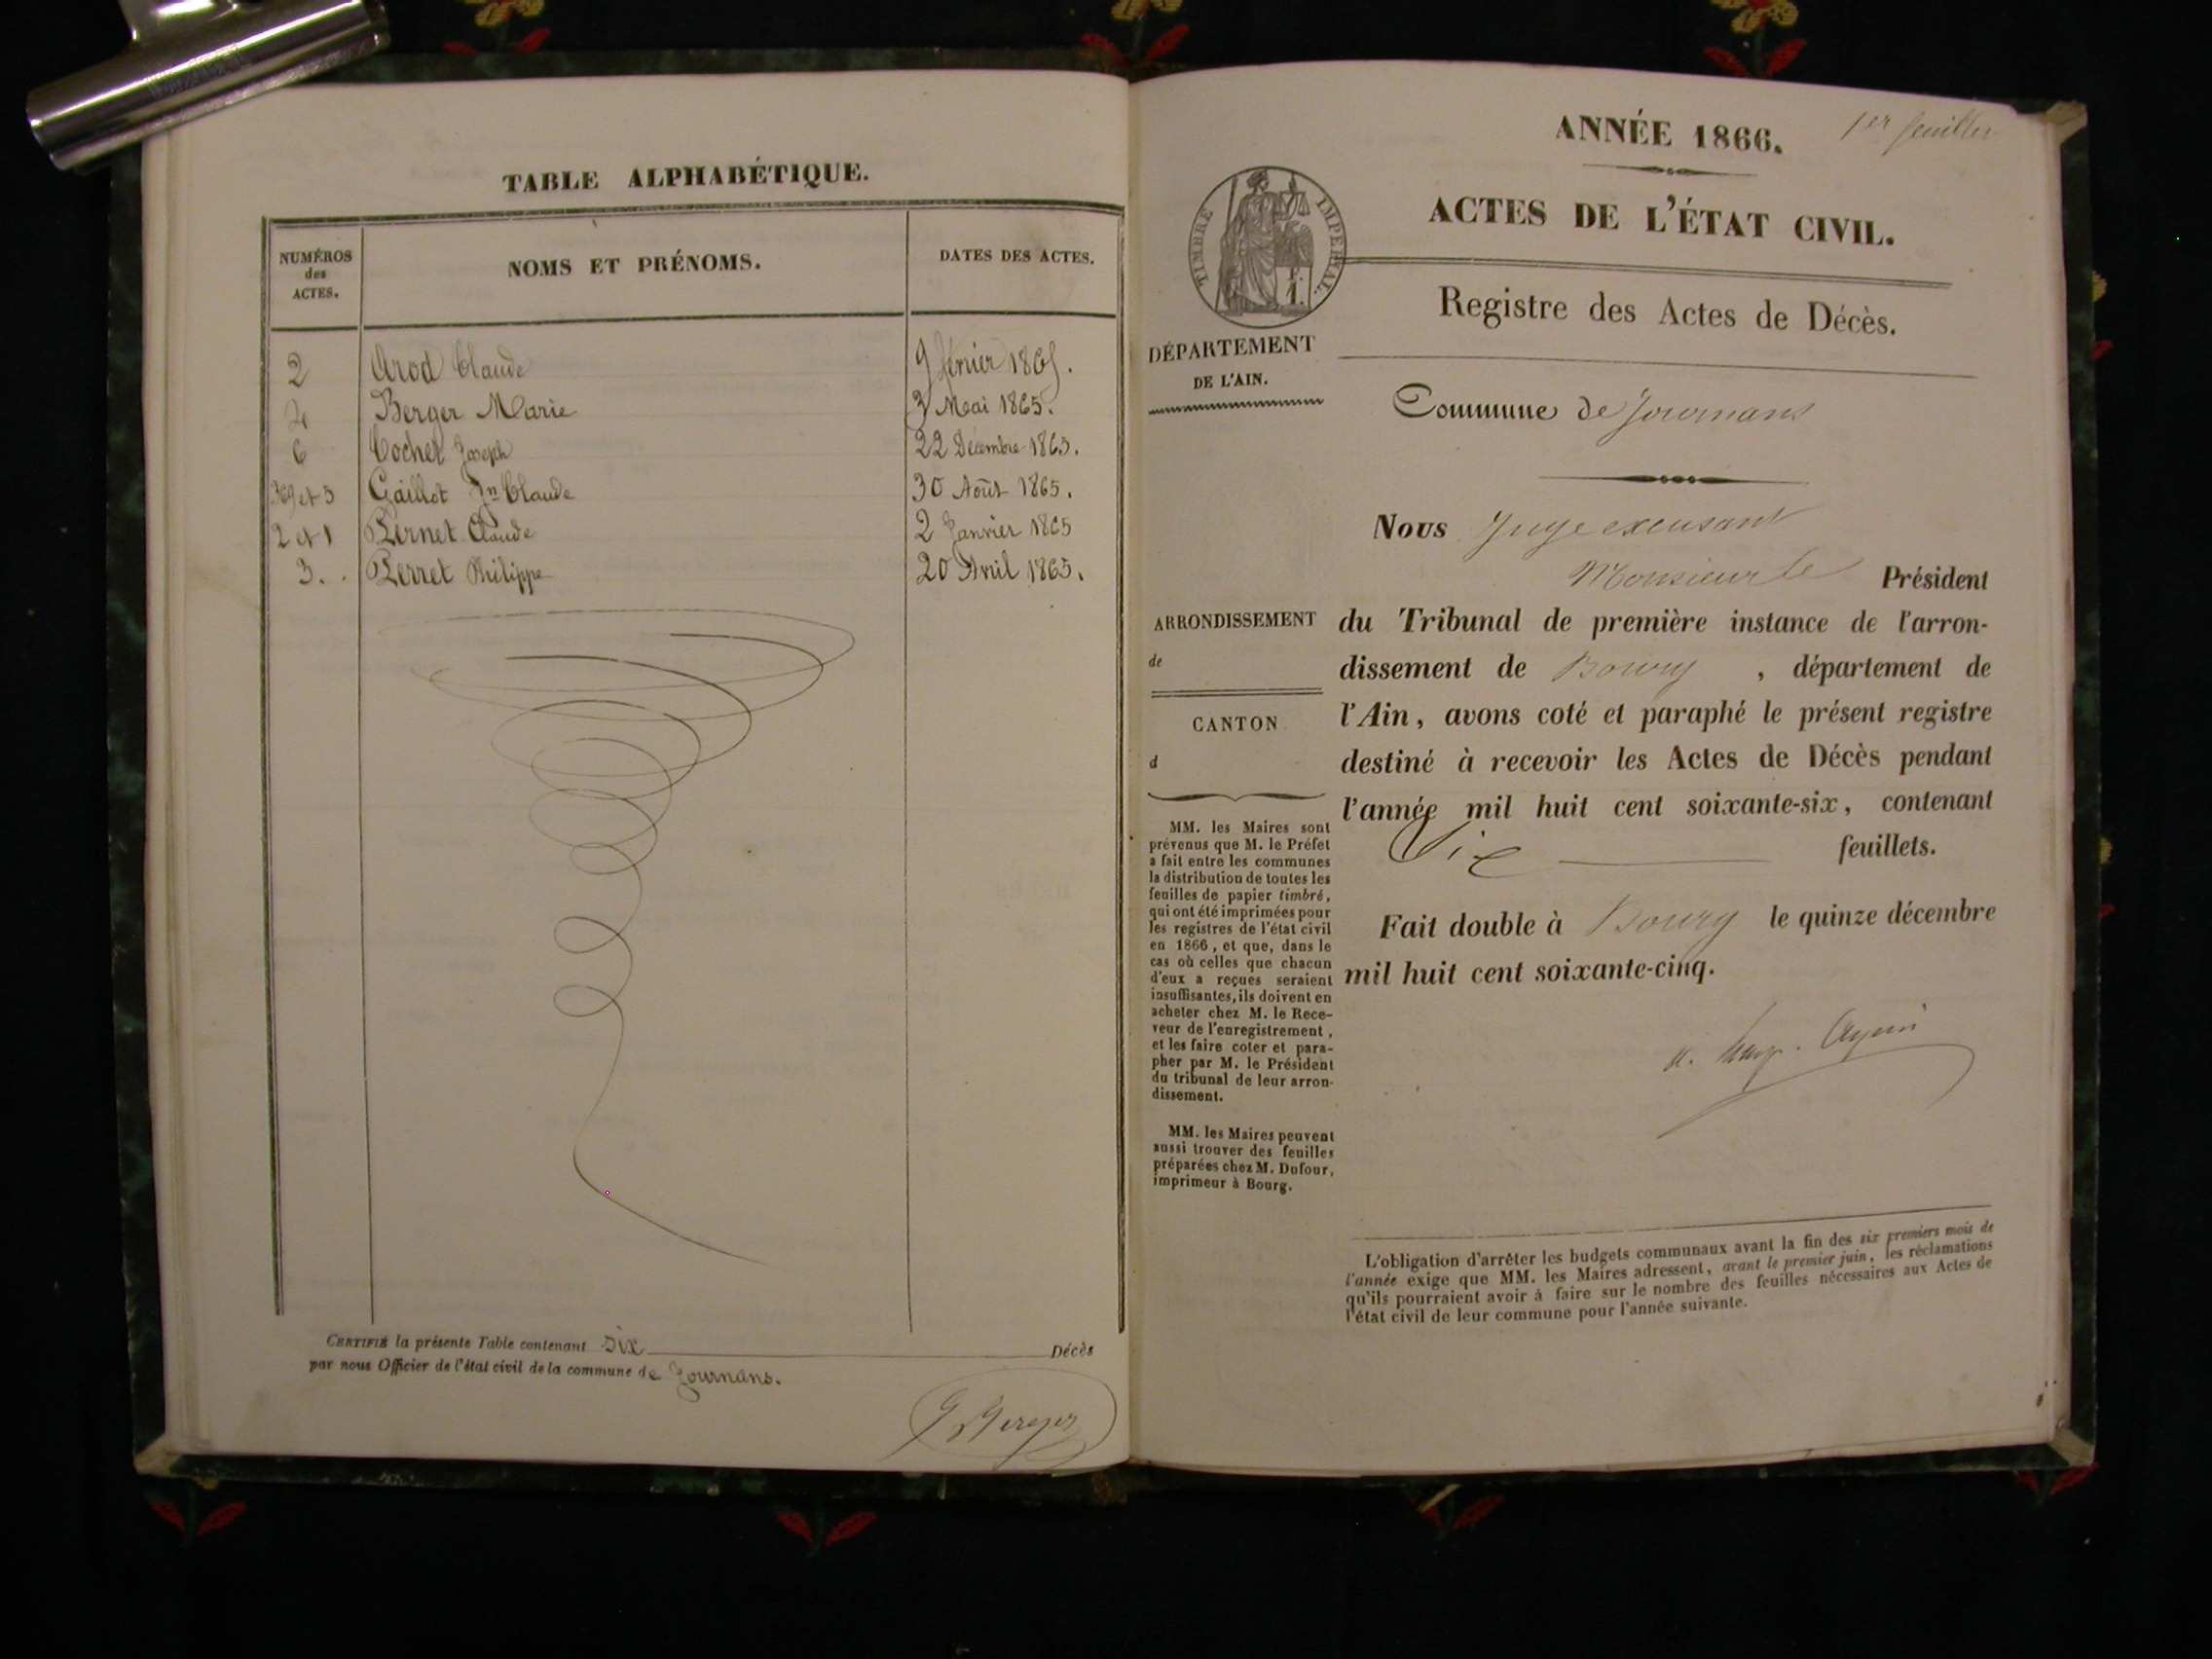 TABLE ALPHABÉTIQUE.
NUMÉROS
des
ACTES.
NOMS ET PRÉNOMS.
DATES DES ACTES.
2 Arod Claude 9 février 1865.
4 Berger Marie 3 Mai 1865.
6 Cochet Joseph 22 Décembre 1865.
et 5 Gaillot Jn Claude 30 Août 1865.
2 et 1 Pernet Claude 2 Janvier 1865
3. Perret Philippe 20 Avril 1865.
CERTIFIÉ la présente Table contenant Six Décès
par nous Officier de l'état civil de la commune de Journans.
Berger
1er feuillet
ANNÉE 1866.
ACTES DE L'ÉTAT CIVIL.
TIMBRE IMPÉRIAL.
Registre des Actes de Décès.
DÉPARTEMENT
DE L'AIN.
Commune de Journans
Nous Juge excusant
Monsieur le Président
du Tribunal de première instance de l'arron-
dissement de Bourg, département de
l'Ain, avons coté et paraphé le présent registre
destiné à recevoir les Actes de Décès pendant
l'année mil huit cent soixante-six, contenant
Six feuillets.
Fait double à Bourg le quinze décembre
mil huit cent soixante-cinq.
ARRONDISSEMENT
de
CANTON
d
MM. les Maires sont
prévenus que M. le Préfet
a fait entre les communes
la distribution de toutes les
feuilles de papier timbré,
qui ont été imprimées pour
les registres de l'état civil
en 1866, et que, dans le
cas où celles que chacun
d'eux a reçues seraient
insuffisantes, ils doivent en
acheter chez M. le Rece-
veur de l'enregistrement,
et les faire coter et para-
pher par M. le Président
du tribunal de leur arron-
dissement.
MM. les Maires peuvent
aussi trouver des feuilles
préparées chez M. Dufour,
imprimeur à Bourg.
L'obligation d'arrêter les budgets communaux avant la fin des six premiers mois de
l'année exige que MM. les Maires adressent, avant le premier juin, les réclamations
qu'ils pourraient avoir à faire sur le nombre des feuilles nécessaires aux Actes de
l'état civil de leur commune pour l'année suivante.